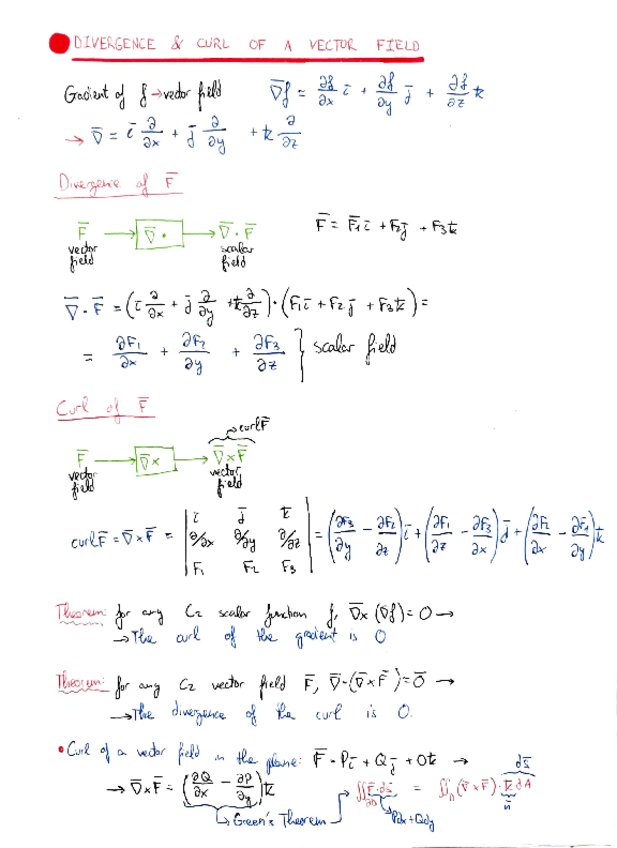 DIVERGENCE & CURL OF A VECTOR FIELD
Gadient of f → vector field ∇̄f = ∂f/∂x ī + ∂f/∂y j̄ + ∂f/∂z k̄
→ ∇̄ = ī ∂/∂x + j̄ ∂/∂y + k̄ ∂/∂z
Divergence of F̄
F̄ → ∇̄· → ∇̄·F̄ F̄ = F̄₁ī + F₂j̄ + F₃k̄
vector field scalar field
∇̄·F̄ = (ī ∂/∂x + j̄ ∂/∂y + k̄ ∂/∂z)·(F₁ī + F₂j̄ + F₃k̄) =
= ∂F₁/∂x + ∂F₂/∂y + ∂F₃/∂z } scalar field
Curl of F̄
→ curlF̄
F̄ → ∇̄× → ∇̄×F̄
vector field vector field
curlF̄ = ∇̄×F̄ = | ī j̄ k̄ | ∂/∂x ∂/∂y ∂/∂z | F₁ F₂ F₃ | = (∂F₃/∂y − ∂F₂/∂z)ī + (∂F₁/∂z − ∂F₃/∂x)j̄ + (∂F₂/∂x − ∂F₁/∂y)k̄
Theorem: for any C₂ scalar function f, ∇̄×(∇̄f) = 0 →
→ The curl of the gradient is 0
Theorem: for any C₂ vector field F̄, ∇̄·(∇̄×F̄) = 0̄ →
→ The divergence of the curl is 0.
• Curl of a vector field in the plane: F̄ = Pī + Qj̄ + 0k̄ →
ds̄
→ ∇̄×F̄ = (∂Q/∂x − ∂P/∂y)k̄ → ∬∂D F̄·ds̄ = ∬D (∇̄×F̄)·k̄ dA
→ Green's Theorem Pdx + Qdy n̄